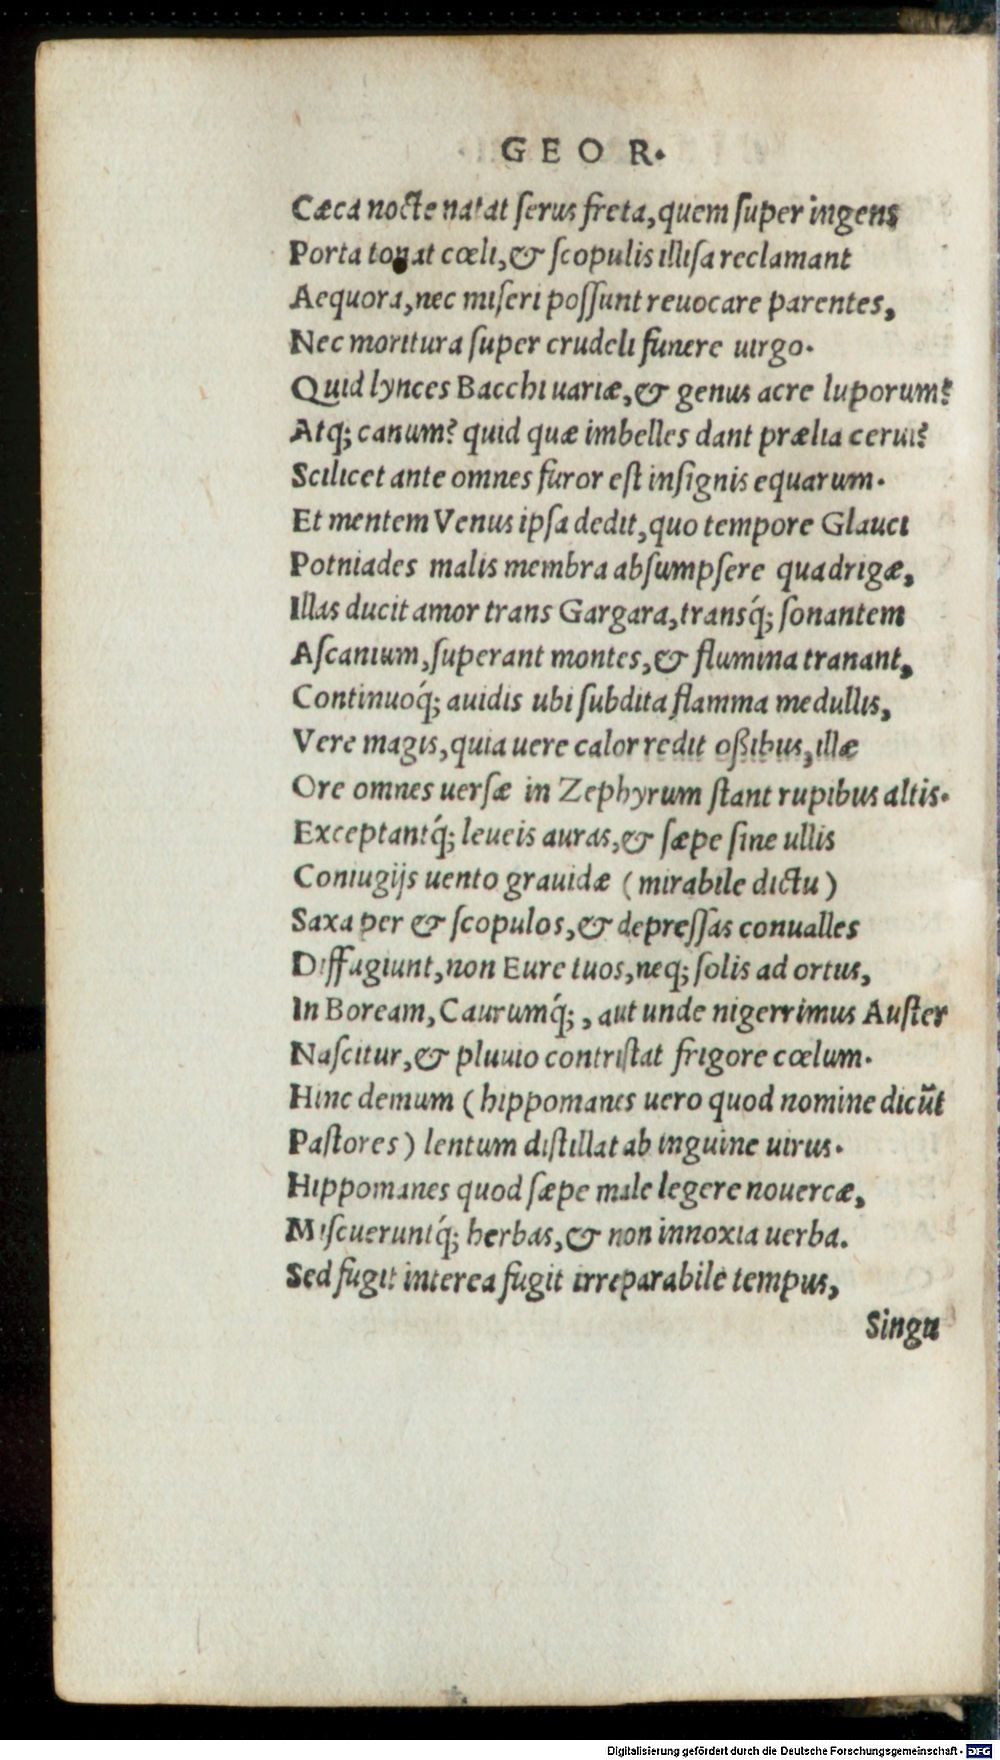 GEOR.
Cæca nocte natat ſerus freta, quem ſuper ingens
Porta tonat cœli, & ſcopulis illiſa reclamant
Aequora, nec miſeri poſſunt reuocare parentes,
Nec moritura ſuper crudeli funere uirgo.
Quid lynces Bacchi uariæ, & genus acre luporum?
Atq; canum? quid quæ imbelles dant prælia cerui?
Scilicet ante omnes furor eſt inſignis equarum.
Et mentem Venus ipſa dedit, quo tempore Glauci
Potniades malis membra abſumpſere quadrigæ,
Illas ducit amor trans Gargara, transq́; ſonantem
Aſcanium, ſuperant montes, & flumina tranant,
Continuoq́; auidis ubi ſubdita flamma medullis,
Vere magis, quia uere calor redit oßibus, illæ
Ore omnes uerſæ in Zephyrum ſtant rupibus altis.
Exceptantq́; leueis auras, & ſæpe ſine ullis
Coniugijs uento grauidæ (mirabile dictu)
Saxa per & ſcopulos, & depreſſas conualles
Diffugiunt, non Eure tuos, neq; ſolis ad ortus,
In Boream, Caurumq́;, aut unde nigerrimus Auſter
Naſcitur, & pluuio contriſtat frigore cœlum.
Hinc demum (hippomanes uero quod nomine dicũt
Paſtores) lentum diſtillat ab inguine uirus.
Hippomanes quod ſæpe male legere nouercæ,
Miſcueruntq́; herbas, & non innoxia uerba.
Sed fugit interea fugit irreparabile tempus,
Singu
Digitalisierung gefördert durch die Deutsche Forschungsgemeinschaft - DFG